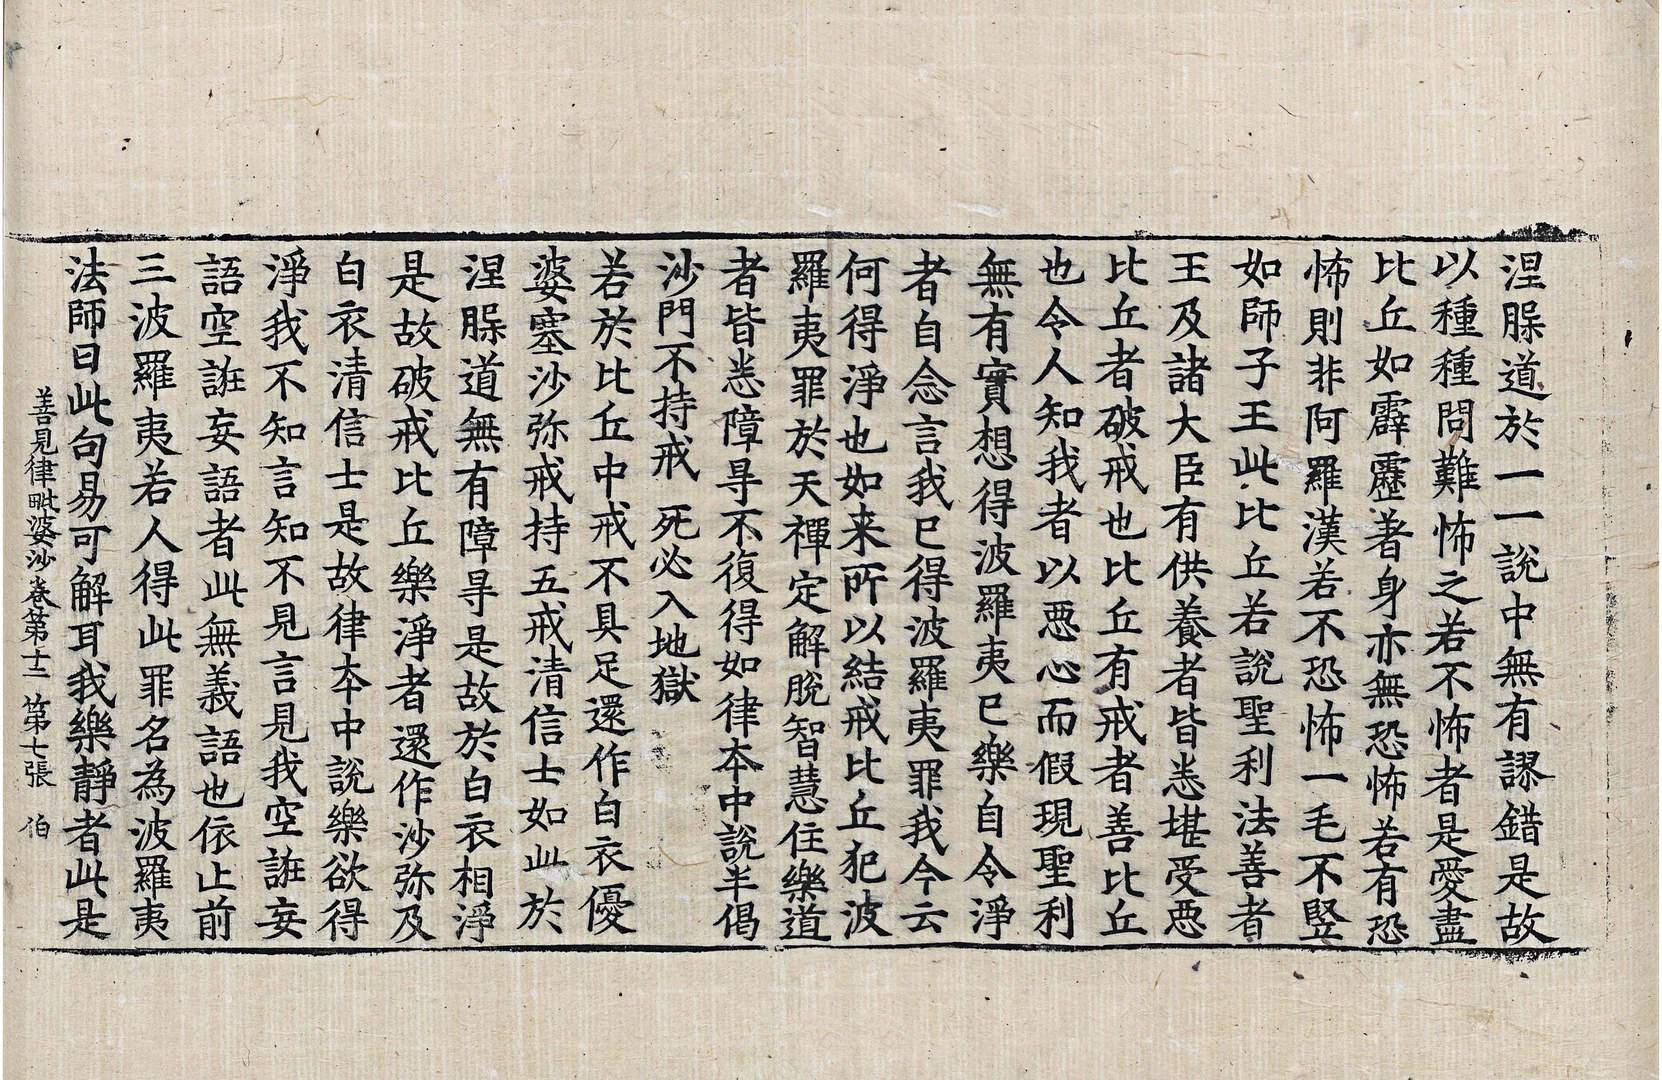 涅𣩠道於一一說中無有謬錯是故
以種種問難怖之若不怖者是愛盡
比丘如霹靂著身亦無恐怖若有恐
怖則非阿羅漢若不恐怖一毛不竪
如師子王此比丘若說聖利法善者
王及諸大臣有供養者皆悉堪受惡
比丘者破戒也比丘有戒者善比丘
也令人知我者以惡心而假現聖利
無有實想得波羅夷已樂自令淨
者自念言我已得波羅夷罪我今云
何得淨也如来所以結戒比丘犯波
羅夷罪於天禪定解脫智慧住樂道
者皆悉障㝵不復得如律本中說半偈
沙門不持戒　死必入地獄
若於比丘中戒不具足還作白衣優
婆塞沙弥戒持五戒清信士如此於
涅𣩠道無有障㝵是故於白衣相淨
是故破戒比丘樂淨者還作沙弥及
白衣清信士是故律本中說樂欲得
淨我不知言知不見言見我空誑妄
語空誑妄語者此無義語也依止前
三波羅夷若人得此罪名為波羅夷
法師曰此句易可解耳我樂靜者此是
善見律毗婆沙卷第十二　第七張　伯